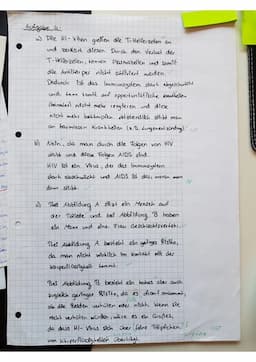 Aufgabe 4:
a) Die HI-Viren greifen die T-Helferzellen an
und zerstört diesen. Durch den Verlust der
T-Helferzellen, können Plasmazellen und somit
die Antikörper nicht aktiviert werden.
Dadurch ist das Immunsystem stark abgeschwächt
und kann somit auf opportunistische Krankheiten
nicht mehr reagieren und diese
nicht mehr bekämpfen. stirbt man
an harmlosen Krankheiten (z.B. Lungenentzündung).
b) Nein, da man durch die Folgen von HIV
stirbt und diese Folgen AIDS sind.
HIV ist ein Virus, der das Immunsystem
stark abschwächt und AIDS ist das, woran man
dann stirbt.
c) Bei Abbildung A sitzt ein Mensch auf
der Toilette und bei Abbildung B haben
ein Mann und eine Frau Geschlechtsverkehr.
Bei Abbildung A besteht ein geringes Risiko,
da man nicht wirklich in Kontakt mit der
Körperflüssigkeit kommt.
Bei Abbildung B besteht ein hohes aber auch
zugleich geringes Risiko, da es darauf ankommt,
ob die Beiden verhüten oder nicht. Wenn sie
nicht verhüten würden, wäre es ein Risiko,
da das HI-Virus sich über
von Körperflüssigkeiten überträgt.